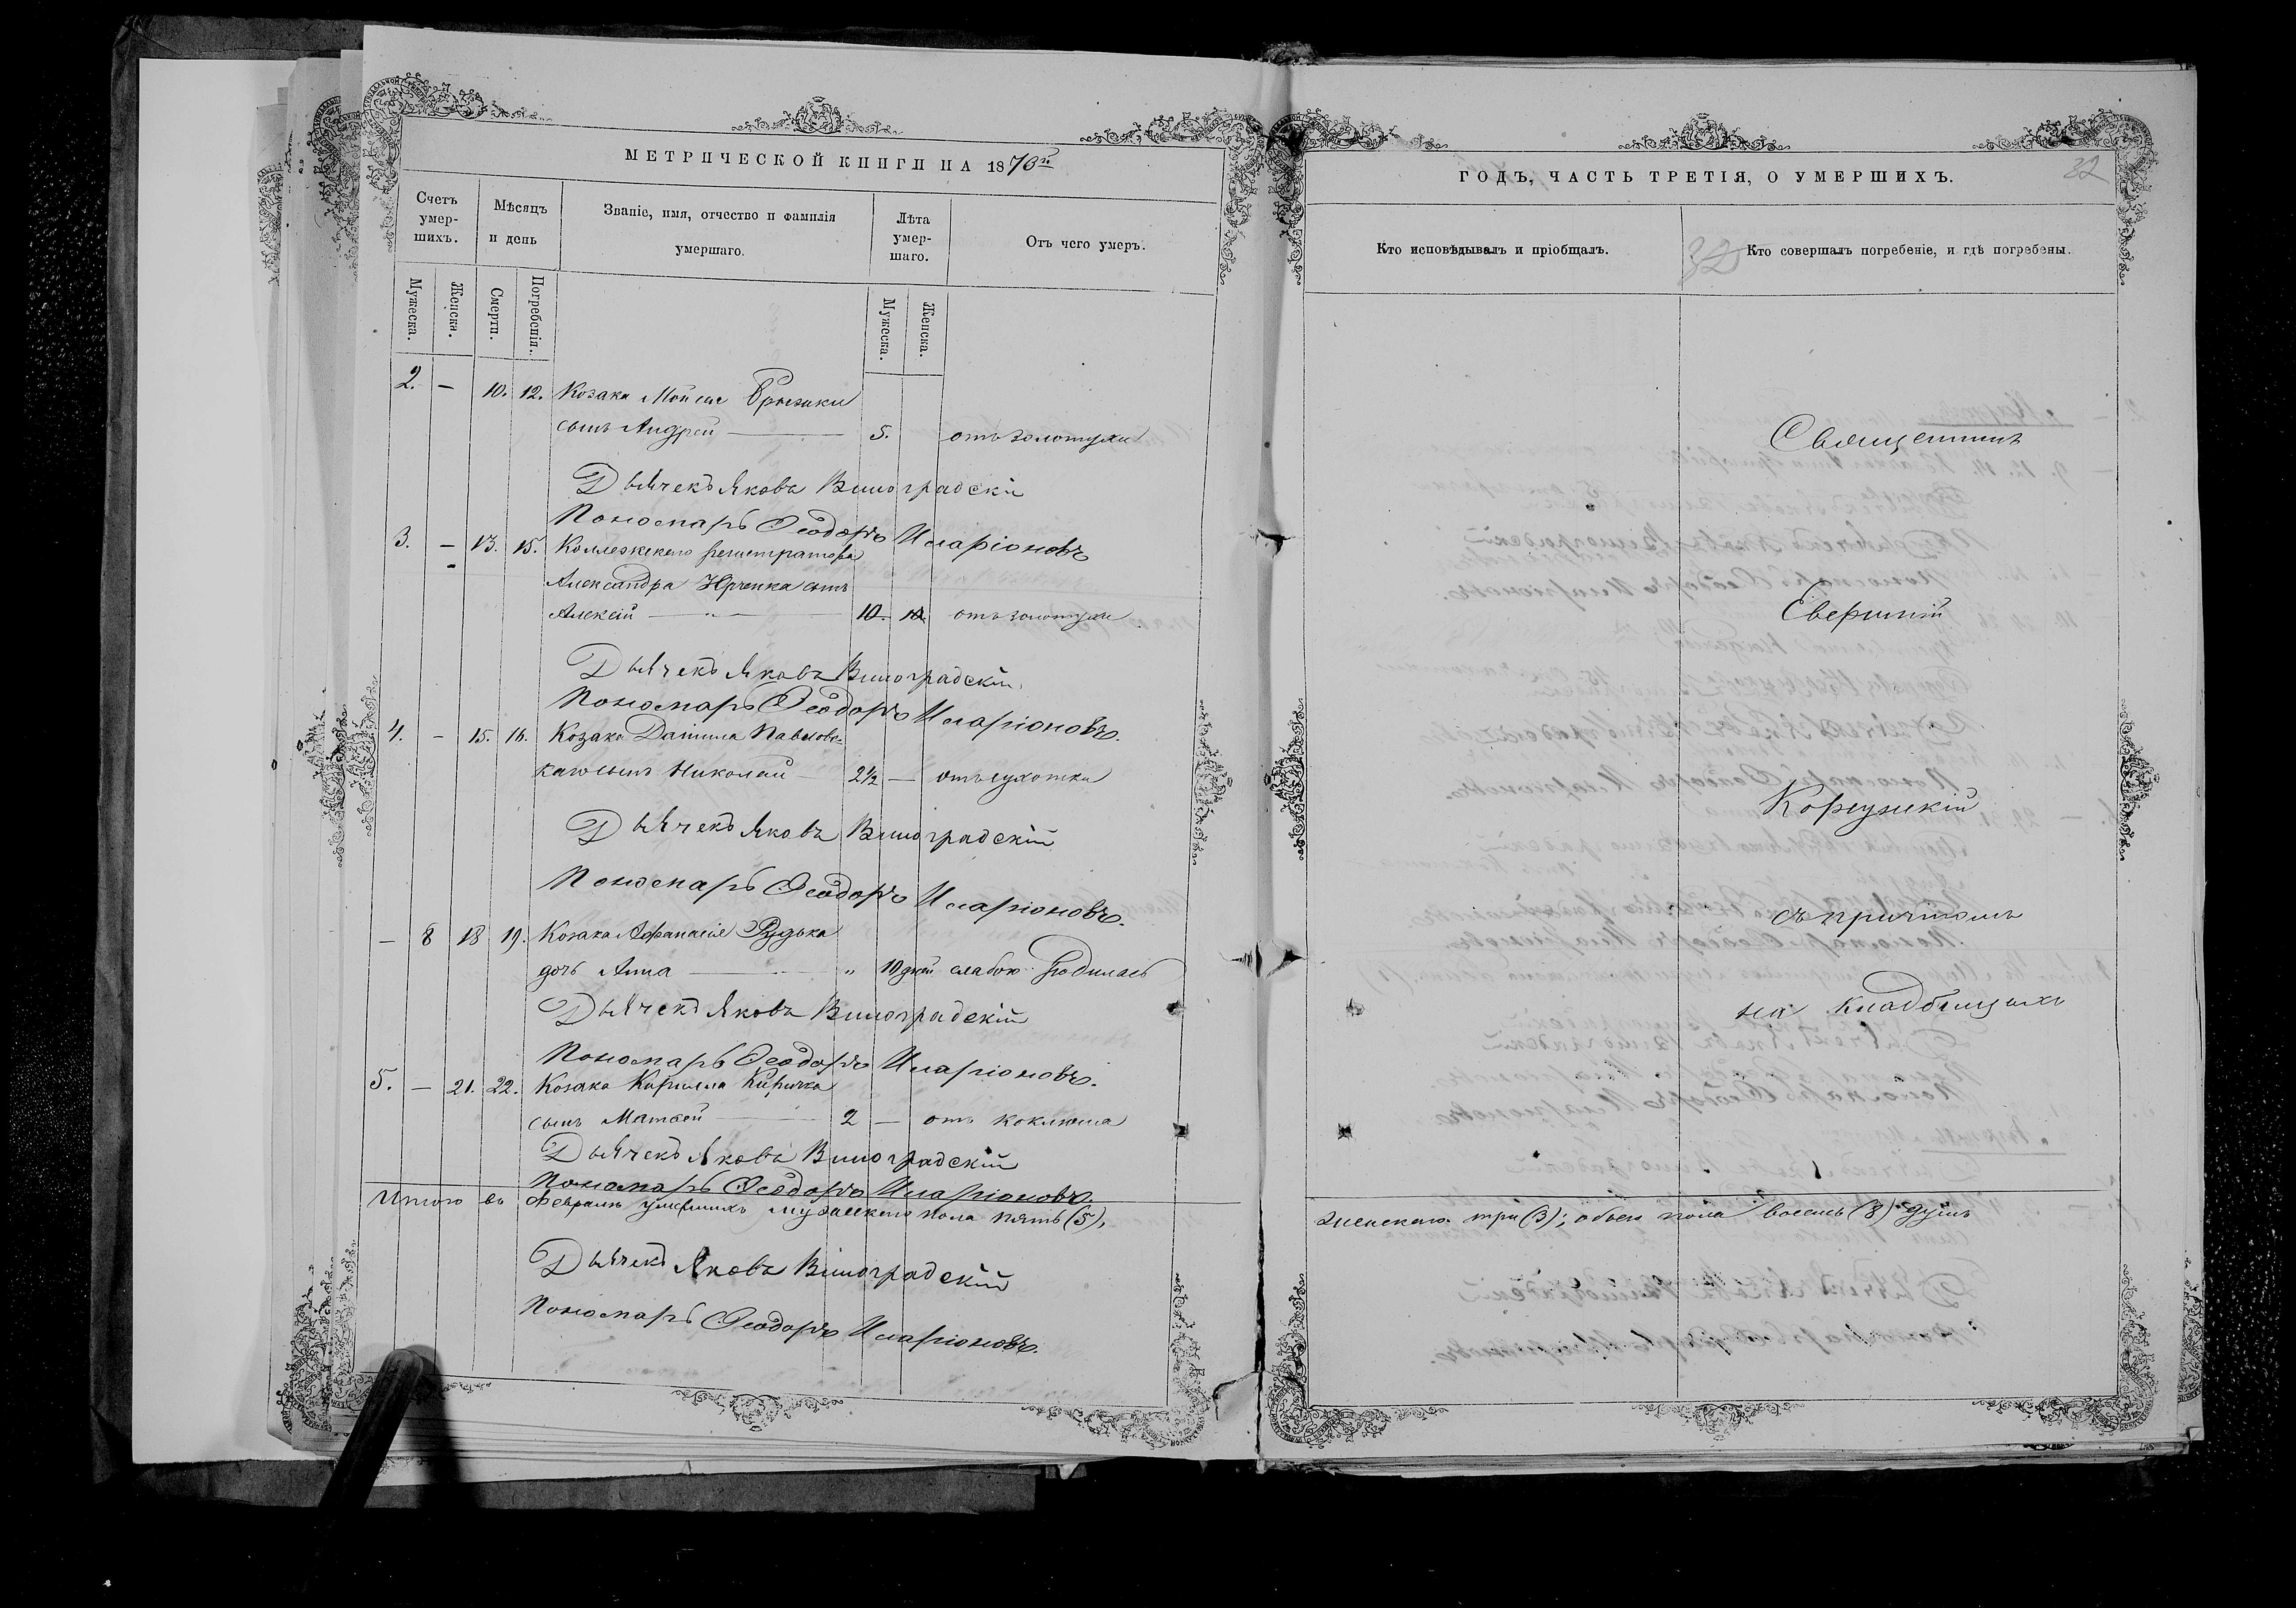 МЕТРИЧЕСКОЙ КНИГИ НА 1870й
Счетъ умер-шихъ.
Мѣсяцъ и день
Званіе, имя, отчество и фамилія умершаго.
Лѣта умер-шаго.
Отъ чего умеръ.
Мужеска.
Женска.
Смерти.
Погребенія.
Мужеска.
Женска.
2. — 10. 12. Козака Мойсея
сынъ Андрей — 5. отъ золотухи
Дьячекъ Яковъ Виноградскій
Пономарь Ѳеодоръ Иларіоновъ
3. — 13. 15. Коллежскаго регистратора
Александра Юрченка сынъ
Алексѣй — 10. отъ золотухи
Дьячекъ Яковъ Виноградскій
Пономарь Ѳеодоръ Иларіоновъ.
4. — 15. 16. Козака Даніила Павловс-
каго сынъ Николай 2½ — отъ сухотки
Дьячекъ Яковъ Виноградскій
Пономарь Ѳеодоръ Иларіоновъ.
— 8 18 19. Козака Афанасія Рудька
дочь Анна — " 10 дней слабою родилась
Дьячекъ Яковъ Виноградскій
Пономарь Ѳеодоръ Иларіоновъ.
5. — 21. 22. Козака Кирилла Киричка
сынъ Матвей — 2 — отъ коклюша
Дьячекъ Яковъ Виноградскій
Пономарь Ѳеодоръ Иларіоновъ.
Итого въ Февралѣ умершихъ мужескаго пола пять (5),
Дьячекъ Яковъ Виноградскій
Пономарь Ѳеодоръ Иларіоновъ.
32
ГОДЪ, ЧАСТЬ ТРЕТІЯ, О УМЕРШИХЪ.
Кто исповѣдывалъ и пріобщалъ.
32
Кто совершалъ погребеніе, и гдѣ погребены.
Священникъ
Корсунскій
съ причтомъ
на кладбищахъ
женскаго три (3); обоего пола восемь (8) душъ